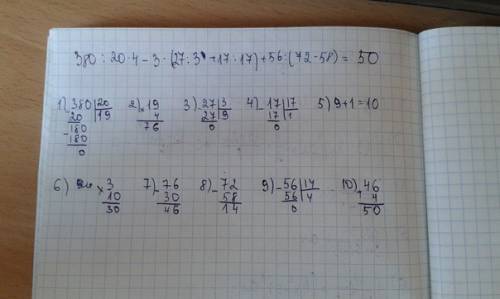 380 : 20 · 4 - 3 · (27 : 3 + 17 : 17) + 56 : (72 - 58) = 50
1) 380 | 20 2) 19 3) 27 | 3 4) 17 | 17 5) 9 + 1 = 10
- 20 | 19 × 4 - 27 | 9 - 17 | 1
180 76 0 0
- 180
0
6) × 3 7) - 76 8) - 72 9) - 56 | 14 10) + 46
10 30 58 56 | 4 4
30 46 14 0 50